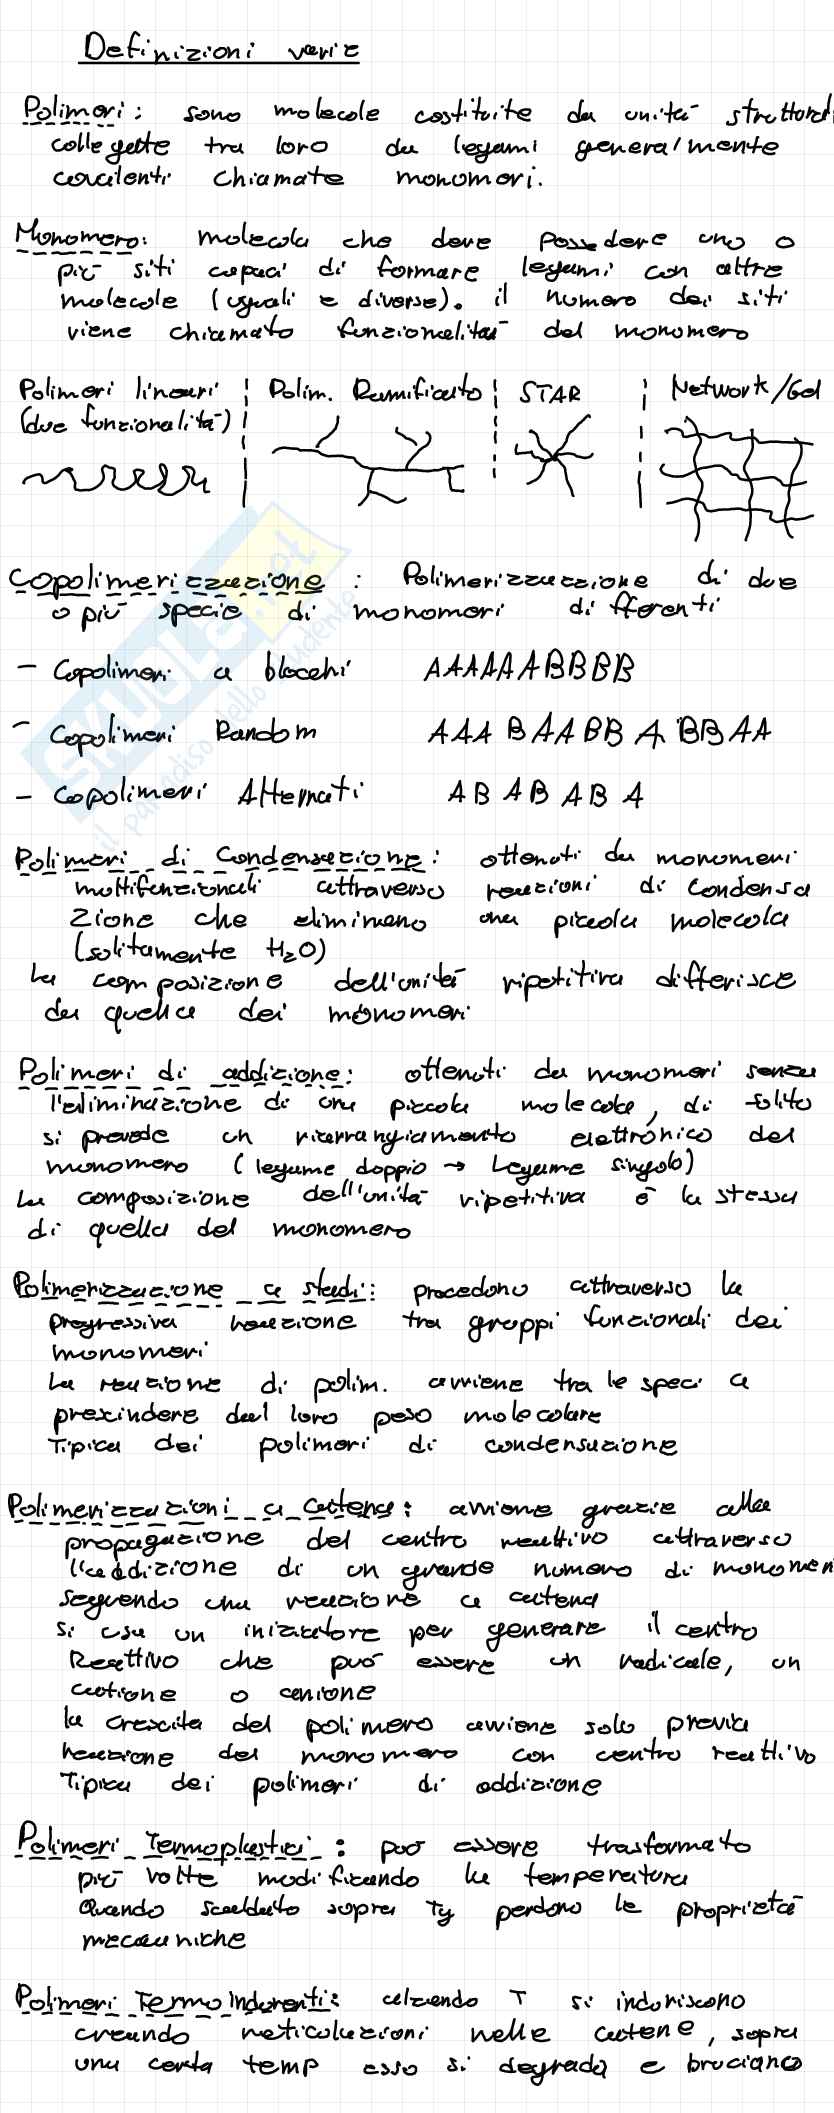 Definizioni varie
Polimeri: sono molecole costituite da unità strutturali
collegate tra loro da legami generalmente
covalenti chiamate monomeri.
Monomero: molecola che deve possedere uno o
più siti capaci di formare legami con altre
molecole (uguali e diverse). il numero dei siti
viene chiamato funzionalità del monomero
Polimeri lineari Polim. Ramificato STAR Network/Gel
(due funzionalità)
Copolimerizzazione: Polimerizzazione di due
o più specie di monomeri differenti
- Copolimeri a blocchi AAAAAABBBB
- Copolimeri Random AAA B AA BB A BB AA
- Copolimeri Alternati AB AB AB A
SKUOLA.net
il paradiso dello studente
Polimeri di Condensazione: ottenuti da monomeri
multifunzionali attraverso reazioni di Condensa
zione che eliminano una piccola molecola
(solitamente H₂O)
La composizione dell'unità ripetitiva differisce
da quella dei monomeri
Polimeri di addizione: ottenuti da monomeri senza
l'eliminazione di una piccola molecola, di solito
si prevede un riarrangiamento elettronico del
monomero (legame doppio → Legame singolo)
La composizione dell'unità ripetitiva è la stessa
di quella del monomero
Polimerizzazione a stadi: procedono attraverso la
progressiva reazione tra gruppi funzionali dei
monomeri
La reazione di polim. avviene tra le speci a
prescindere dal loro peso molecolare
Tipica dei polimeri di condensazione
Polimerizzazioni a Catena: avviene grazie alla
propagazione del centro reattivo attraverso
l'addizione di un grande numero di monomeri
seguendo una reazione a catena
si usa un iniziatore per generare il centro
Reattivo che può essere un radicale, un
catione o anione
la crescita del polimero avviene solo previa
reazione del monomero con centro reattivo
Tipica dei polimeri di addizione
Polimeri Termoplastici: può essere trasformato
più volte modificando la temperatura
Quando scaldato sopra Tg perdono le proprietà
meccaniche
Polimeri TermoIndurenti: alzando T si induriscono
creando reticolazioni nelle catene, sopra
una certa temp esso si degrada e bruciano